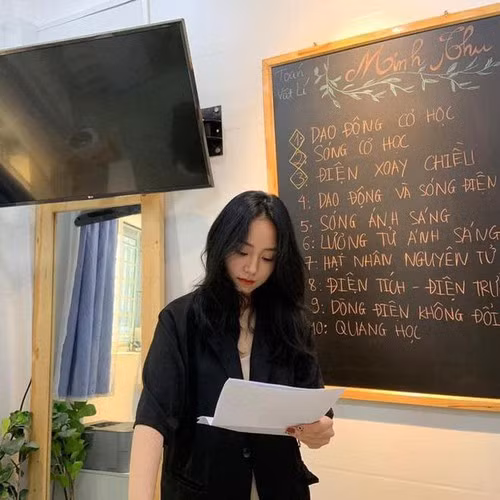 Toán
Vật Lí
Minh Thu
1. DAO ĐỘNG CƠ HỌC
2. SÓNG CƠ HỌC
3. ĐIỆN XOAY CHIỀU
4. DAO ĐỘNG VÀ SÓNG ĐIỆN
5. SÓNG ÁNH SÁNG
6: LƯỢNG TỬ ÁNH SÁNG
7. HẠT NHÂN NGUYÊN TỬ
8: ĐIỆN TÍCH - ĐIỆN TRƯ
9: DÒNG ĐIỆN KHÔNG ĐỔI
10: QUANG HỌC
LG